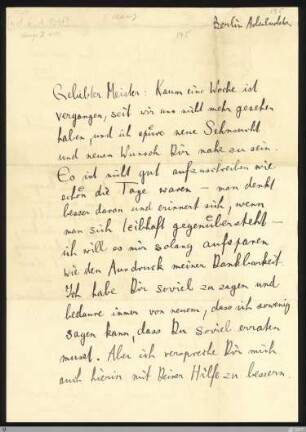 Berlin
Geliebter Meister: Kaum eine Woche ist
vergangen, seit wir uns nicht mehr gesehen
haben, und ich spüre neue Sehnsucht
und neuen Wunsch Dir nahe zu sein.
Es ist nicht gut aufzuschreiben wie
schön die Tage waren – man denkt
besser daran und erinnert sich, wenn
man sich leibhaft gegenübersteht –
ich will es mir solang aufsparen
wie den Ausdruck meiner Dankbarkeit.
Ich habe Dir soviel zu sagen und
bedaure immer von neuem, dass ich sowenig
sagen kann, dass Du soviel erraten
musst. Aber ich verspreche Dir mich
auch hierin mit Deiner Hilfe zu bessern.